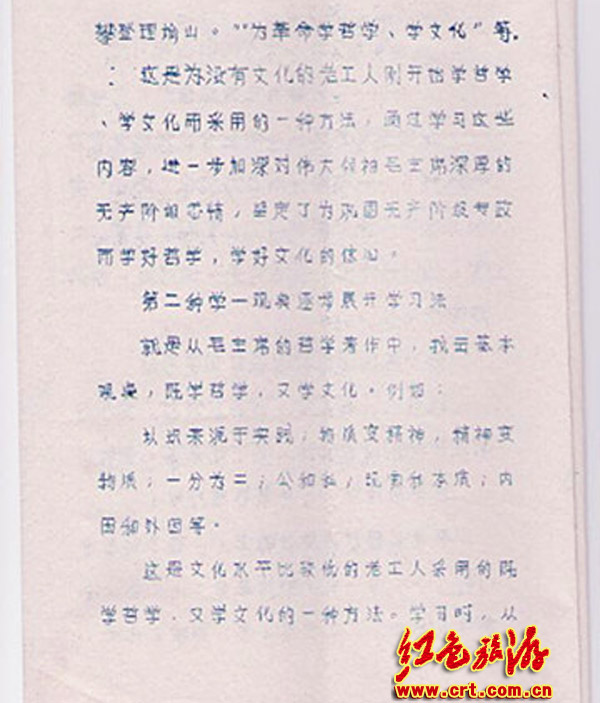 攀登理论山。“为革命学哲学、学文化”等.
这是为没有文化的老工人刚开始学哲学
、学文化而采用的一种方法，通过学习这些
内容，进一步加深对伟大领袖毛主席深厚的
无产阶级感情，坚定了为巩固无产阶级专政
而学好哲学，学好文化的信心。
第二种学一观点逐步展开学习法
就是从毛主席的哲学著作中，找出基本
观点，既学哲学，又学文化。例如：
认识来源于实践；物质变精神，精神变
物质；一分为二；公和私；现象和本质；内
因和外因等。
这是文化水平比较低的老工人采用的既
学哲学．又学文化的一种方法。学习时，从
红色旅游
www.crt.com.cn